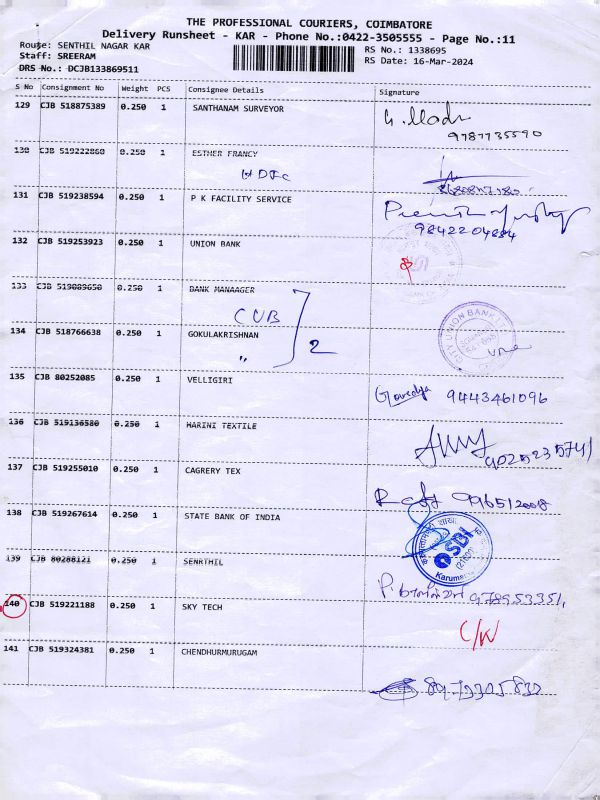 THE PROFESSIONAL COURIERS, COIMBATORE
Delivery Runsheet - KAR - Phone No.:0422-3505555 - Page No.:11
Route: SENTHIL NAGAR KAR
RS No.: 1338695
Staff: SREERAM
RS Date: 16-Mar-2024
DRS No.: DCJB133869511
S No Consignment No Weight PCS Consignee Details Signature
129 CJB 518875389 0.250 1 SANTHANAM SURVEYOR
9787735590
130 CJB 519222860 0.250 1 ESTHER FRANCY
HDFC
131 CJB 519238594 0.250 1 P K FACILITY SERVICE
9842204884
132 CJB 519253923 0.250 1 UNION BANK
133 CJB 519089650 0.250 1 BANK MANAAGER
CUB
134 CJB 518766638 0.250 1 GOKULAKRISHNAN
" 2
CITY UNION BANK LTD
135 CJB 80252085 0.250 1 VELLIGIRI
9443461096
136 CJB 519136580 0.250 1 HARINI TEXTILE
9025235741
137 CJB 519255010 0.250 1 CAGRERY TEX
138 CJB 519267614 0.250 1 STATE BANK OF INDIA
SBI
139 CJB 80288121 0.250 1 SENRTHIL
978953351
140 CJB 519221188 0.250 1 SKY TECH
C/N
141 CJB 519324381 0.250 1 CHENDHURMURUGAM